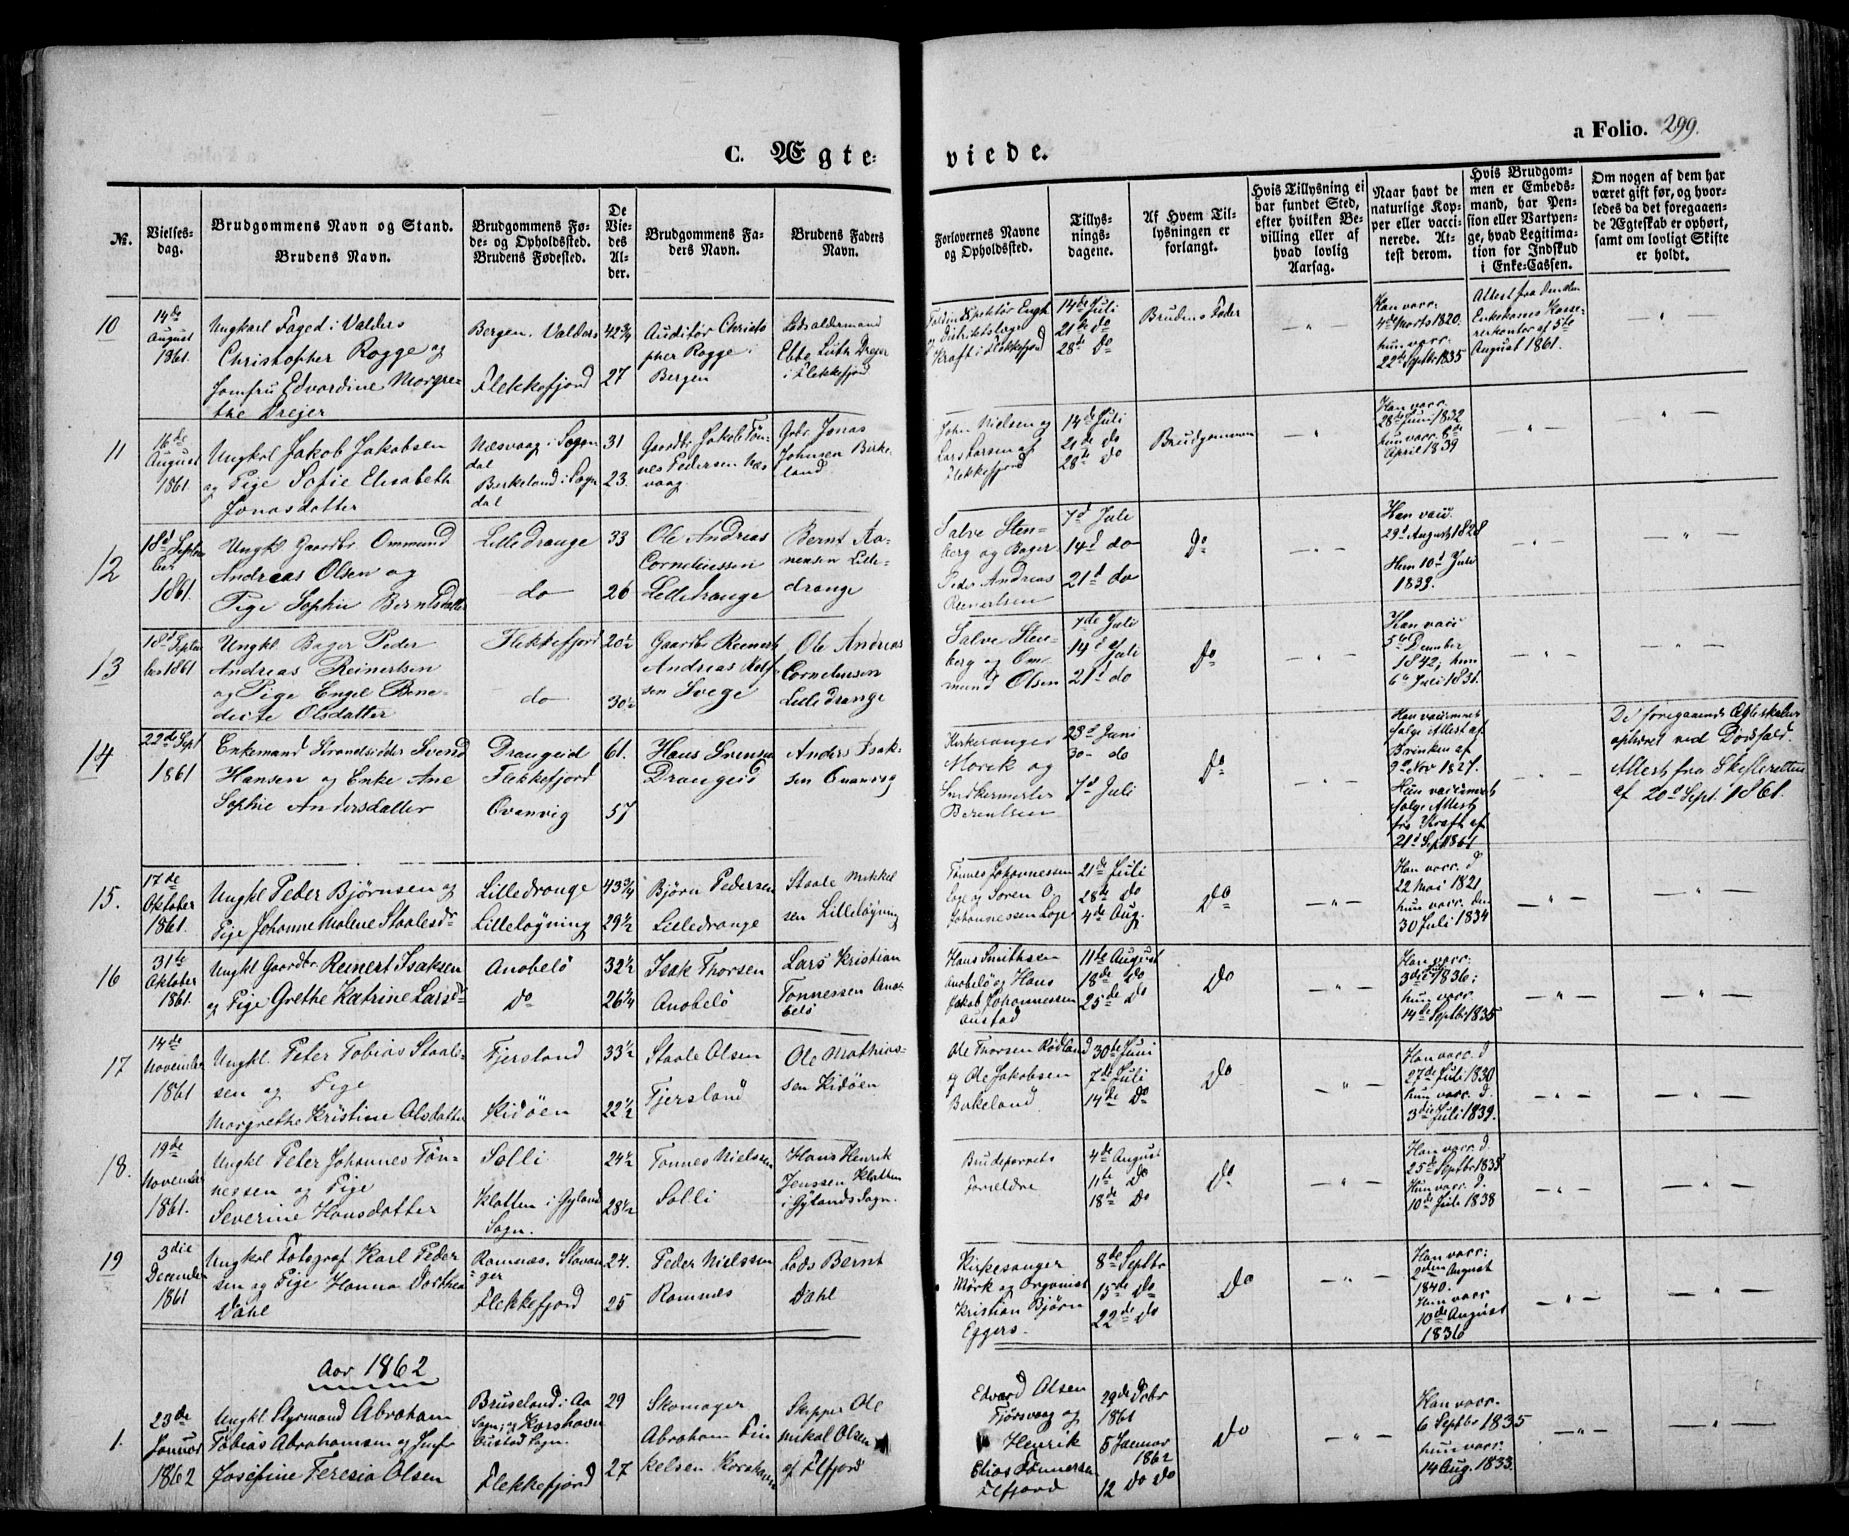 C. Ægte-
viede.
a Folio. 299.
№.
Vielses-
dag.
Brudgommens Navn og Stand.
Brudens Navn.
Brudgommens Fø-
de- og Opholdssted.
Brudens Fødested.
De
Vie-
des
Al-
der.
Brudgommens Fa-
ders Navn.
Brudens Faders
Navn.
Forlovernes Navne
og Opholdssted.
Tillys-
nings-
dagene.
Af Hvem Til-
lysningen er
forlangt.
Hvis Tillysning ei
har fundet Sted,
efter hvilken Be-
villing eller af
hvad lovlig
Aarsag.
Naar havt de
naturlige Kop-
per eller vacci-
nerede. At-
test derom.
Hvis Brudgom-
men er Embeds-
mand, har Pen-
sion eller Vartpen-
ge, hvad Legitima-
tion for Indskud
i Enke-Cassen.
Om nogen af dem har
været gift før, og hvor-
ledes da det foregaaen-
de Ægteskab er ophørt,
samt om lovligt Skifte
er holdt.
10
14de
August
1861.
Ungkarl Foged i Valders
Christopher Rogge og
Jomfru Edvardine Margre-
the Drejer
Bergen. Valders
Flekkefjord
42 3/4
27
Auditør Christo
pher Rogge i
Bergen
Lodsoldermand
Ebbe Lüth Drejer
i Flekkefjord
Toldinspektør Engh
og Distriktslæge
Kraft i Flekkefjord
14de Juli
21de do
28de Do
Brudens Fader
- " -
Han vacc.
4de Marts 1820.
hun vacc.
22de Septbr 1835
Attest fra den alm
Enkekasses Kasse-
rerkontor af 5te
August 1861.
"
11
16de
August
1861.
Ungkl Jakob Jakobsen
og Pige Sofie Elisabeth
Jonasdatter
Næsvaag i Sogn
dal
Birkeland i Sogn
dal
31
23.
Gaardbr Jakob Tøn-
nes Pedersen Næs
vaag
Grbr Jonas
Johnsen Birke-
land
John Nielsen og
Lars Larsen af
Flekkefjord
14de Juli
21de do
28de Do
Brudgommen
- " -
Han vacc.
28de Juni 1832
hun vacc. 8de
April 1839
- " -
"
12
18d Septem
ber
1861.
Ungkl Gaardbr Ommund
Andreas Olsen og
Pige Sophie Berntsdatter
Lilledrange
do
33
26
Ole Andreas
Corneliussen
Lilledrange
Bernt Aa-
nensen Lille-
drange
Salve Sten-
berg og Bager
Peder Andreas
Reinertsen
7d Juli
14d do
21d do
Do
- " -
Han vacc.
29d August 1828
Hun 10d Juli
1839.
- " -
- " -
13
18d Septem
ber 1861
Ungkl Bager Peder
Andreas Reinertsen
og Pige Engel Bene-
dicte Olsdatter
Flekkefjord
do
20 1/2
30 1/2
Gaardbr Reinert
Andreas Rolf-
sen Svege
Ole Andreas
Corneliussen
Lilledrange
Salve Sten-
berg og Om-
mund Olsen
7de Juli
14d Juli
21d do
Do
- " -
Han vacc
5te December
1842; hun
6te Juli 1831.
- " -
- " -
14
22de Sept
1861
Enkemand Strandsidder Svend
Hansen og Enke Ane
Sophie Andersdatter
Drangeid
Flekkefjord
Qvanvig
61.
57
Hans Svensen
Drangeid
Anders Isak-
sen Qvanvig
Kirkesanger
Mörck og
Snedkermester
Berentsen
23d Juni
30- do
7d Juli
Do
- " -
Han vaccineret
følge Attest af
Brinken af
9d Nov 1827.
Hun vaccineret
følge Attest
fra Kraft af
21d Sept 1861
- " -
De foregaaende Ægteskaber
ophævet ved Dødsfald.
Attest fra Skifteretten
af 20d Sept. 1861.
15.
17de
Oktober
1861.
Ungkl Peder Bjørnsen og
Pige Johanne Malene Staalesdr
Lilledrange
Lilleløgning
43 3/4
29 1/2
Bjørn Pedersen
Lilledrange
Staale Mikkel
sen Lilleløgning
Tønnes Johannessen
Loge og Søren O
Johannessen Loge
21de Juli
28de Do
4de Aug.
Do
- " -
Han vacc. d
22 Mai 1821
hun vacc. den
30 Juli 1834
- " -
- " -
16
31te
Oktober
1861.
Ungkl Gaardbr Reinert Isaksen
og Pige Grethe Katrine Larsdr
Anabelö
Do
32 1/2
26 1/4
Isak Thorsen
Anabelö
Lars Kristian
Tönnessen Ana-
belö
Hans Smithsen
Anabelö og Hans
Jakob Johannessen
Austad
11te August
18de Do
25de Do
Do
- " -
Han vacc:
3de 1836;
hun vacc.
14de Septbr 1835
- " -
- " -
17
14de
November
1861
Ungkl Peter Tobias Staale-
sen og Pige
Margrethe Kristine Olsdatter
Fjersland
Kidöen
33 1/2
22 1/2
Staale Olsen
Fjersland
Ole Mathias-
sen Kidöen
Ole Thorsen Rødland
og Ole Jakobsen
Birkeland
30de Juni
7de Juli
14de Do
Do
- " -
Han vacc. d
27de Juli 1830
hun vacc. d.
3die Juli 1839.
- " -
- " -
18.
19de
November
1861.
Ungkl Peter Johannes Tøn-
nessen og Pige
Severine Hansdatter
Solli
Klatten i Gyland
Sogn.
24 1/2
28 1/2
Tønnes Nielssen
Solli
Hans Henrik
Jenssen Klatten
i Gylands Sogn.
Brudeparrets
Forældre
4de August
11te Do
18de Do
Do
- " -
Han vacc. d
25de Septbr 1838
Hun vacc. d.
10de Juli 1838
- " -
- " -
19
3die
December
1861
Ungkal Fotograf Karl Peder
sen og Pige Hanna Dorthea
Dahl
Ramnæs. Stavan-
ger
Flekkefjord
24.
25
Peder Nielssen
Ramnæs
Lods Bernt
Dahl
Kirkesanger
Mörk og Organist
Kristian Bjørn
Eggers.
8de Septbr
15de Do
22de Do
Do
- " -
Han vacc:
2den August
1840.
Hun vacc.
10de August
1836
- " -
- " -
Aar 1862
1.
23de
Januar
1862
Ungkl Styrmand Abraham
Tobias Abrahamsen og Jmfr
Josefine Teresia Olsen
Bruseland i Aa
Sogn; og Korshavn
Austad Sogn.
Flekkefjord
29
27
Skomager
Abraham Fin
kelsen Korshavn
Skipper Ole
Mikal Olsen
af Flfjord
Edvard Olsen
Tjørsvaag og
Henrik
Elias Tønnesen
Flfjord
29de Dcbr
1861
5 Januar
1862
12 Do Do
Do
- " -
Han vacc.
6 Septbr 1835
hun vacc.
14 Aug. 1833.
- " -
- " -